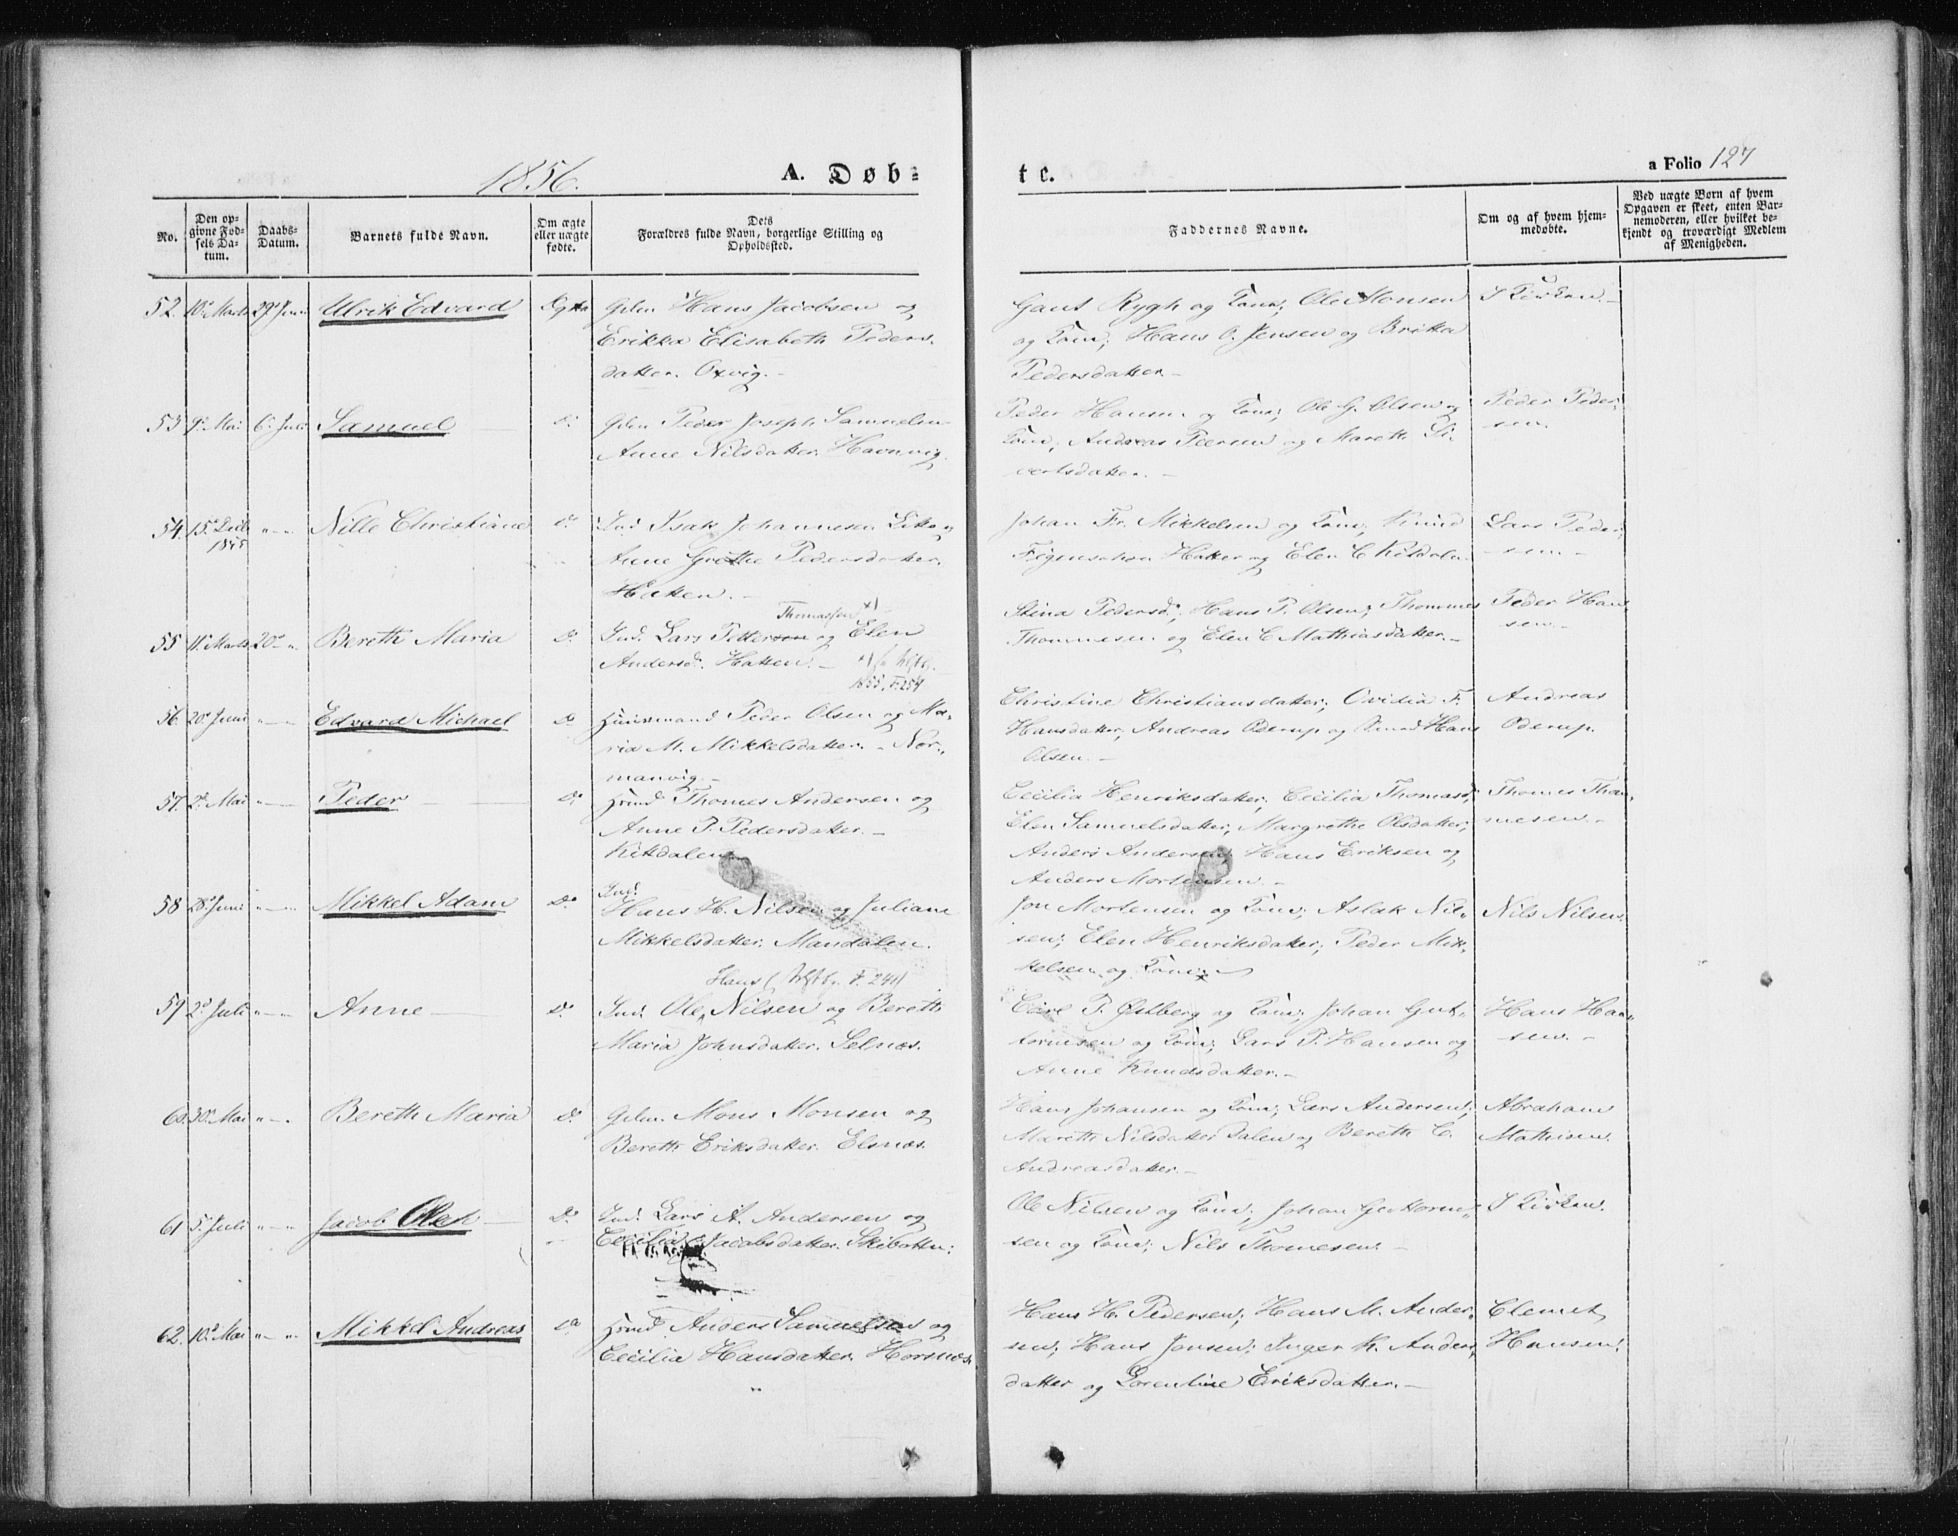 1856.
A. Døb-
te.
a Folio 127
No.
Den op-
givne Fød-
sels Da-
tum.
Daabs-
Datum.
Barnets fulde Navn.
Om ægte
eller uægte
fødte.
Dets
Forældres fulde Navn, borgerlige Stilling og
Opholdssted.
Faddernes Navne.
Om og af hvem hjem-
medøbte.
Ved uægte Børn af hvem
Opgaven er skeet, enten Bar-
nemoderen, eller hvilket be-
kjendt og troværdigt Medlem
af Menigheden.
52. 10. Marts 29. Juni Ulrik Edvard Ægte Hans Jacobsen og
Erikka Elisabeth Peders-
datter. Oxvig.
Rygh og Kone; Ole Monsen
og Kone; Hans O. Jensen og Britta
Pedersdatter
I Kirken.
53 9. Mai 6. Juli Samuel do. Peder Joseph Samuelsen
Anne Nilsdatter. Havnvig.
Peder Hansen og Kone; Ole G. Olsen og
Kone; Andreas Peersen og Mareth Si-
vertsdatter.
Peder Peder-
sen.
54. 15. Decbr 1855 " " Nille Christiane do. Ind. Isak Johannesen og
Anne Grethe Pedersdatter.
Hatten.
Johan Fr. Mikkelsen og Kone; Knud
og Elen C.
Lars Peder-
sen.
55 11. Marts 20. " Bereth Maria do. Ind. Lars Pettersen og Elen
Thomassen x)
Andersd. Hatten.
1855. F. 254
Stina Pedersd.; Hans P. Olsen; Thommes
Thommesen og Elen C. Mathiasdatter.
Peder Han-
sen.
56. 20. Juni " " Edvard Michael do. Huusmand Peder Olsen og Ma-
ria M. Mikkelsdatter. Nor-
manvig.
Christine Christiansdatter; Ovidia F.
Hansdatter, Andreas Oderup og Hans
Olsen.
Andreas
Oderup.
57. 2. Mai " " Peder do. Hmd Thomes Andersen og
Anne P. Pedersdatter.
Kitdalen
Cecilia Henriksdatter; Cecilia Thomasd;
Elen Samuelsdatter; Margrethe Olsdatter;
Anders Andersen; Hans Eriksen og
Anders Mortensen.
Thomes Thom-
mesen.
58 28. Juni " " Mikkel Adam do. Ind.
Hans H. Nilsen og Juliane
Mikkelsdatter. Mandalen.
Jon Mortensen og Kone; Aslak Nil-
sen; Elen Henriksdatter; Peder Mik-
kelsen og Kone.
Nils Nilsen.
59 2. Juli " " Anne do. Ind. Ole Nilsen og Bereth
Hans F. 244
Maria Johnsdatter. Selnæs.
Carl P. Østberg og Kone; Johan Gut-
tormsen og Kone; Lars P. Hansen og
Anne Knudsdatter.
Hans Han-
sen.
60. 30. Mai " " Bereth Maria do. Mons Monsen og
Bereth Eriksdatter. Elsnæs.
Hans Johansen og Kone; Lars Andersen;
Mareth Nilsdatter Dalen og Bereth C.
Andreasdatter.
Abraham
Mathisen.
61 5. Juli " " Jacob Olek do. Ind. Lars A. Andersen og
Cecilia Jacobsdatter. Skibotten.
Ole Nilsen og Kone; Johan Guttorm-
sen og Kone; Nils Thomesen.
I Kirken.
62. 10. Mai " " Mikkel Andreas do. Hmd Anders Samuelsen og
Cecilia Hansdatter. Horsnæs.
Hans H. Pedersen; Hans M. Ander-
sen; Hans Jonsen; Inger K. Anders-
datter og Lorentine Eriksdatter.
Clemet
Hansen.